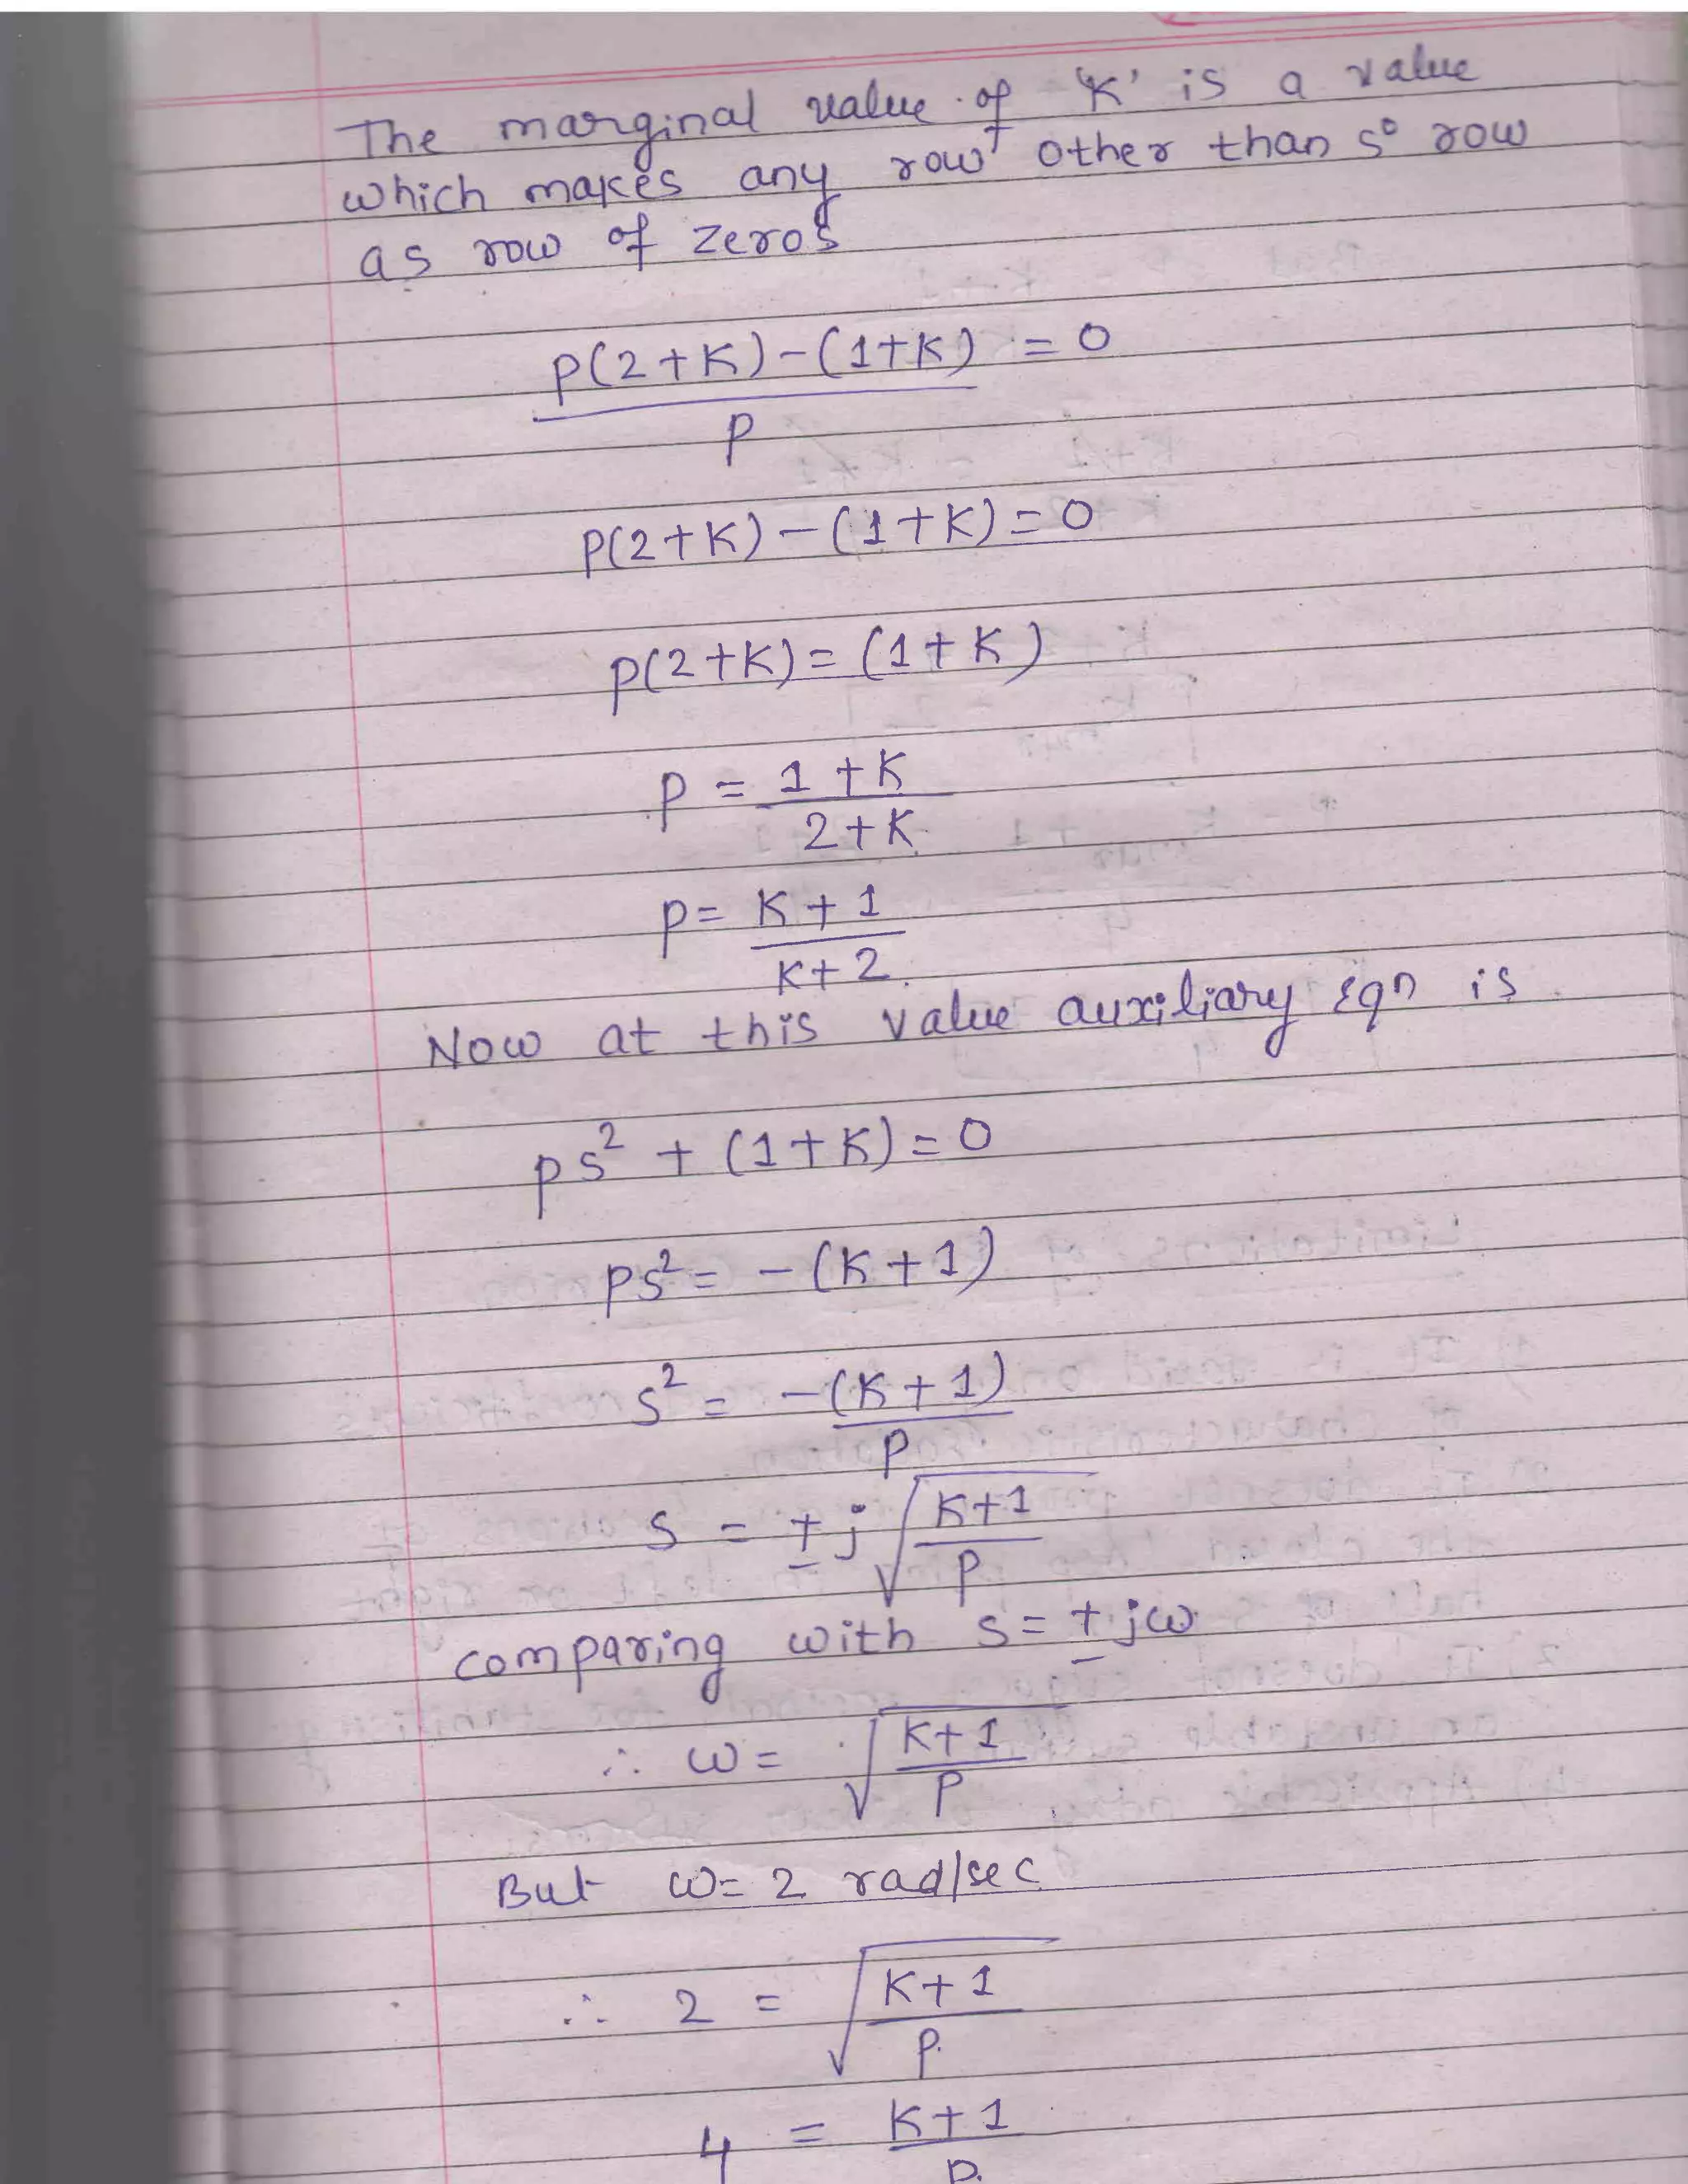 The marginal value of 'K' is a value
which makes any row other than s⁰ row
as row of zeros
p(2+K)-(1+K) = 0
p
p(2+K)-(1+K)=0
p(2+K)=(1+K)
p = 1+K
2+K
p= K+1
K+2
Now at this value auxiliary Eqn is
ps² + (1+K)=0
ps²= -(K+1)
s² = -(K+1)
p
s = ±j√K+1
p
comparing with s=±jω
∴ ω= √K+1
p
But ω=2 rad/sec
∴ 2 = √K+1
p.
4 = K+1
p.